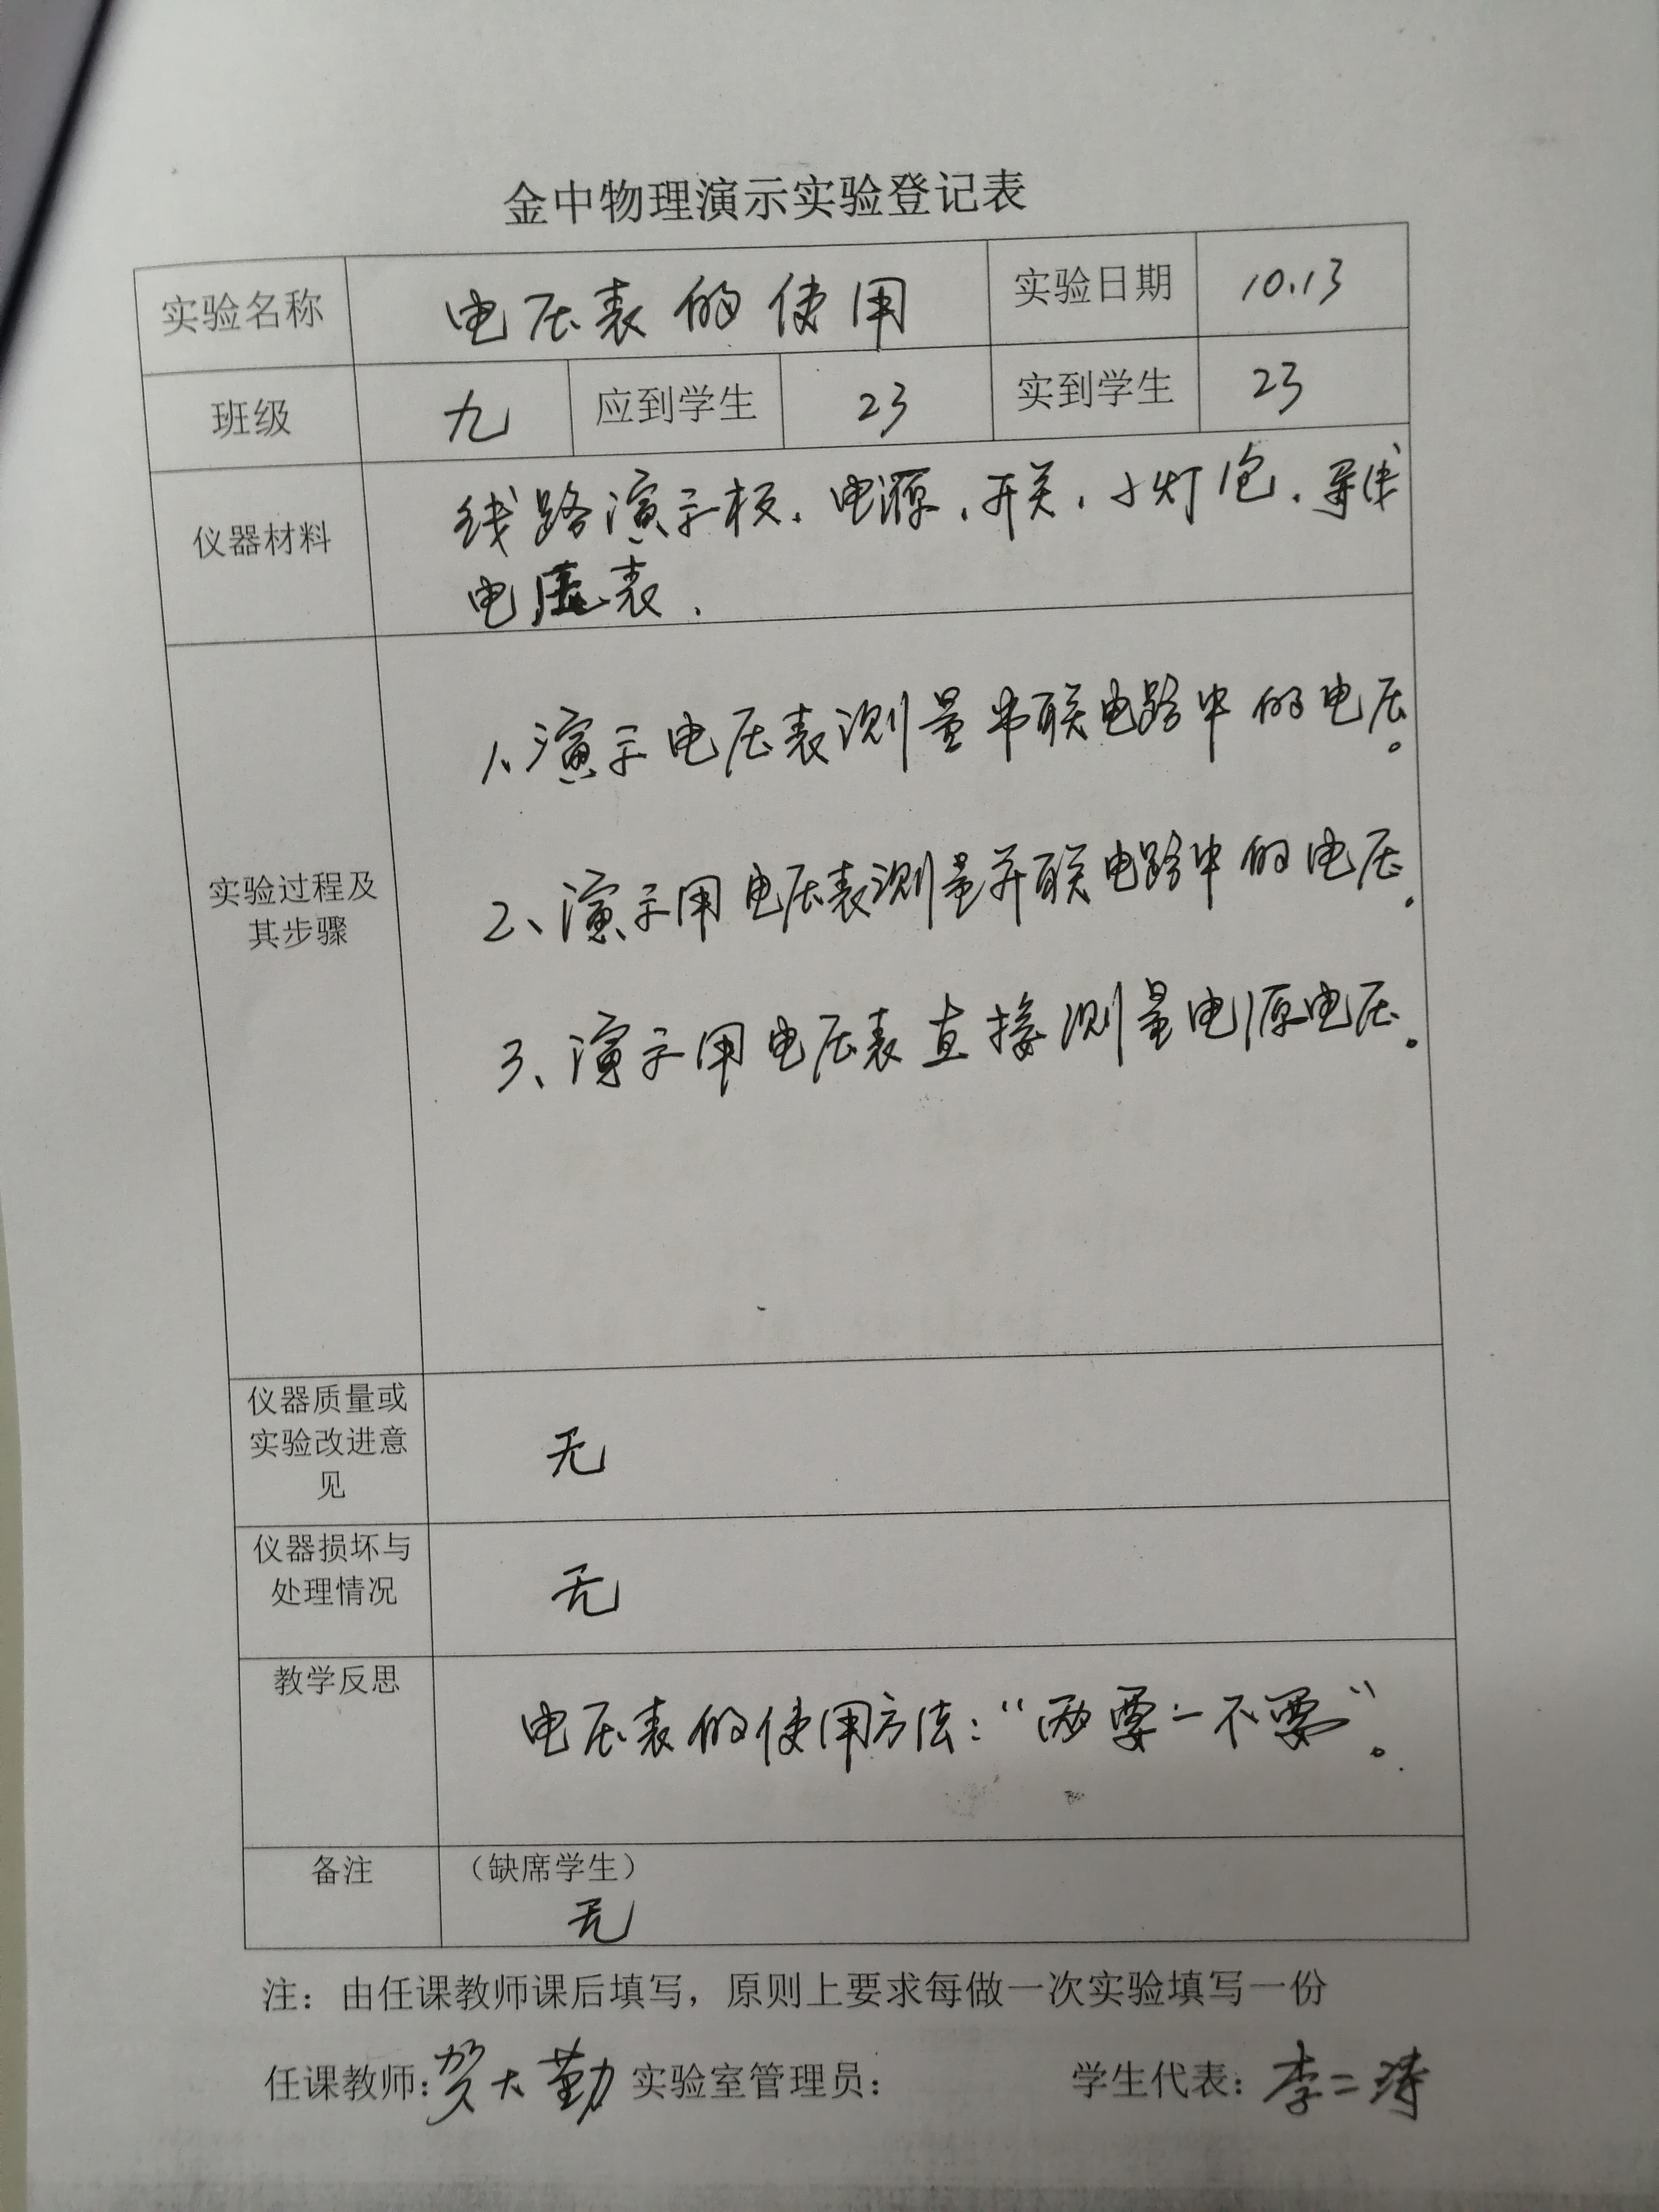 金中物理演示实验登记表
实验名称 电压表的使用 实验日期 10.13
班级 九 应到学生 23 实到学生 23
仪器材料 线路演示板、电源、开关、小灯泡、导线
电压表.
1、演示电压表测量串联电路中的电压。
2、演示用电压表测量并联电路中的电压.
实验过程及
其步骤
3、演示用电压表直接测量电源电压.
仪器质量或
实验改进意
见
无
仪器损坏与
处理情况
无
教学反思
电压表的使用方法：“两要一不要”。
备注 （缺席学生）
无
注：由任课教师课后填写，原则上要求每做一次实验填写一份
任课教师：贺大勤 实验室管理员： 学生代表：李二涛